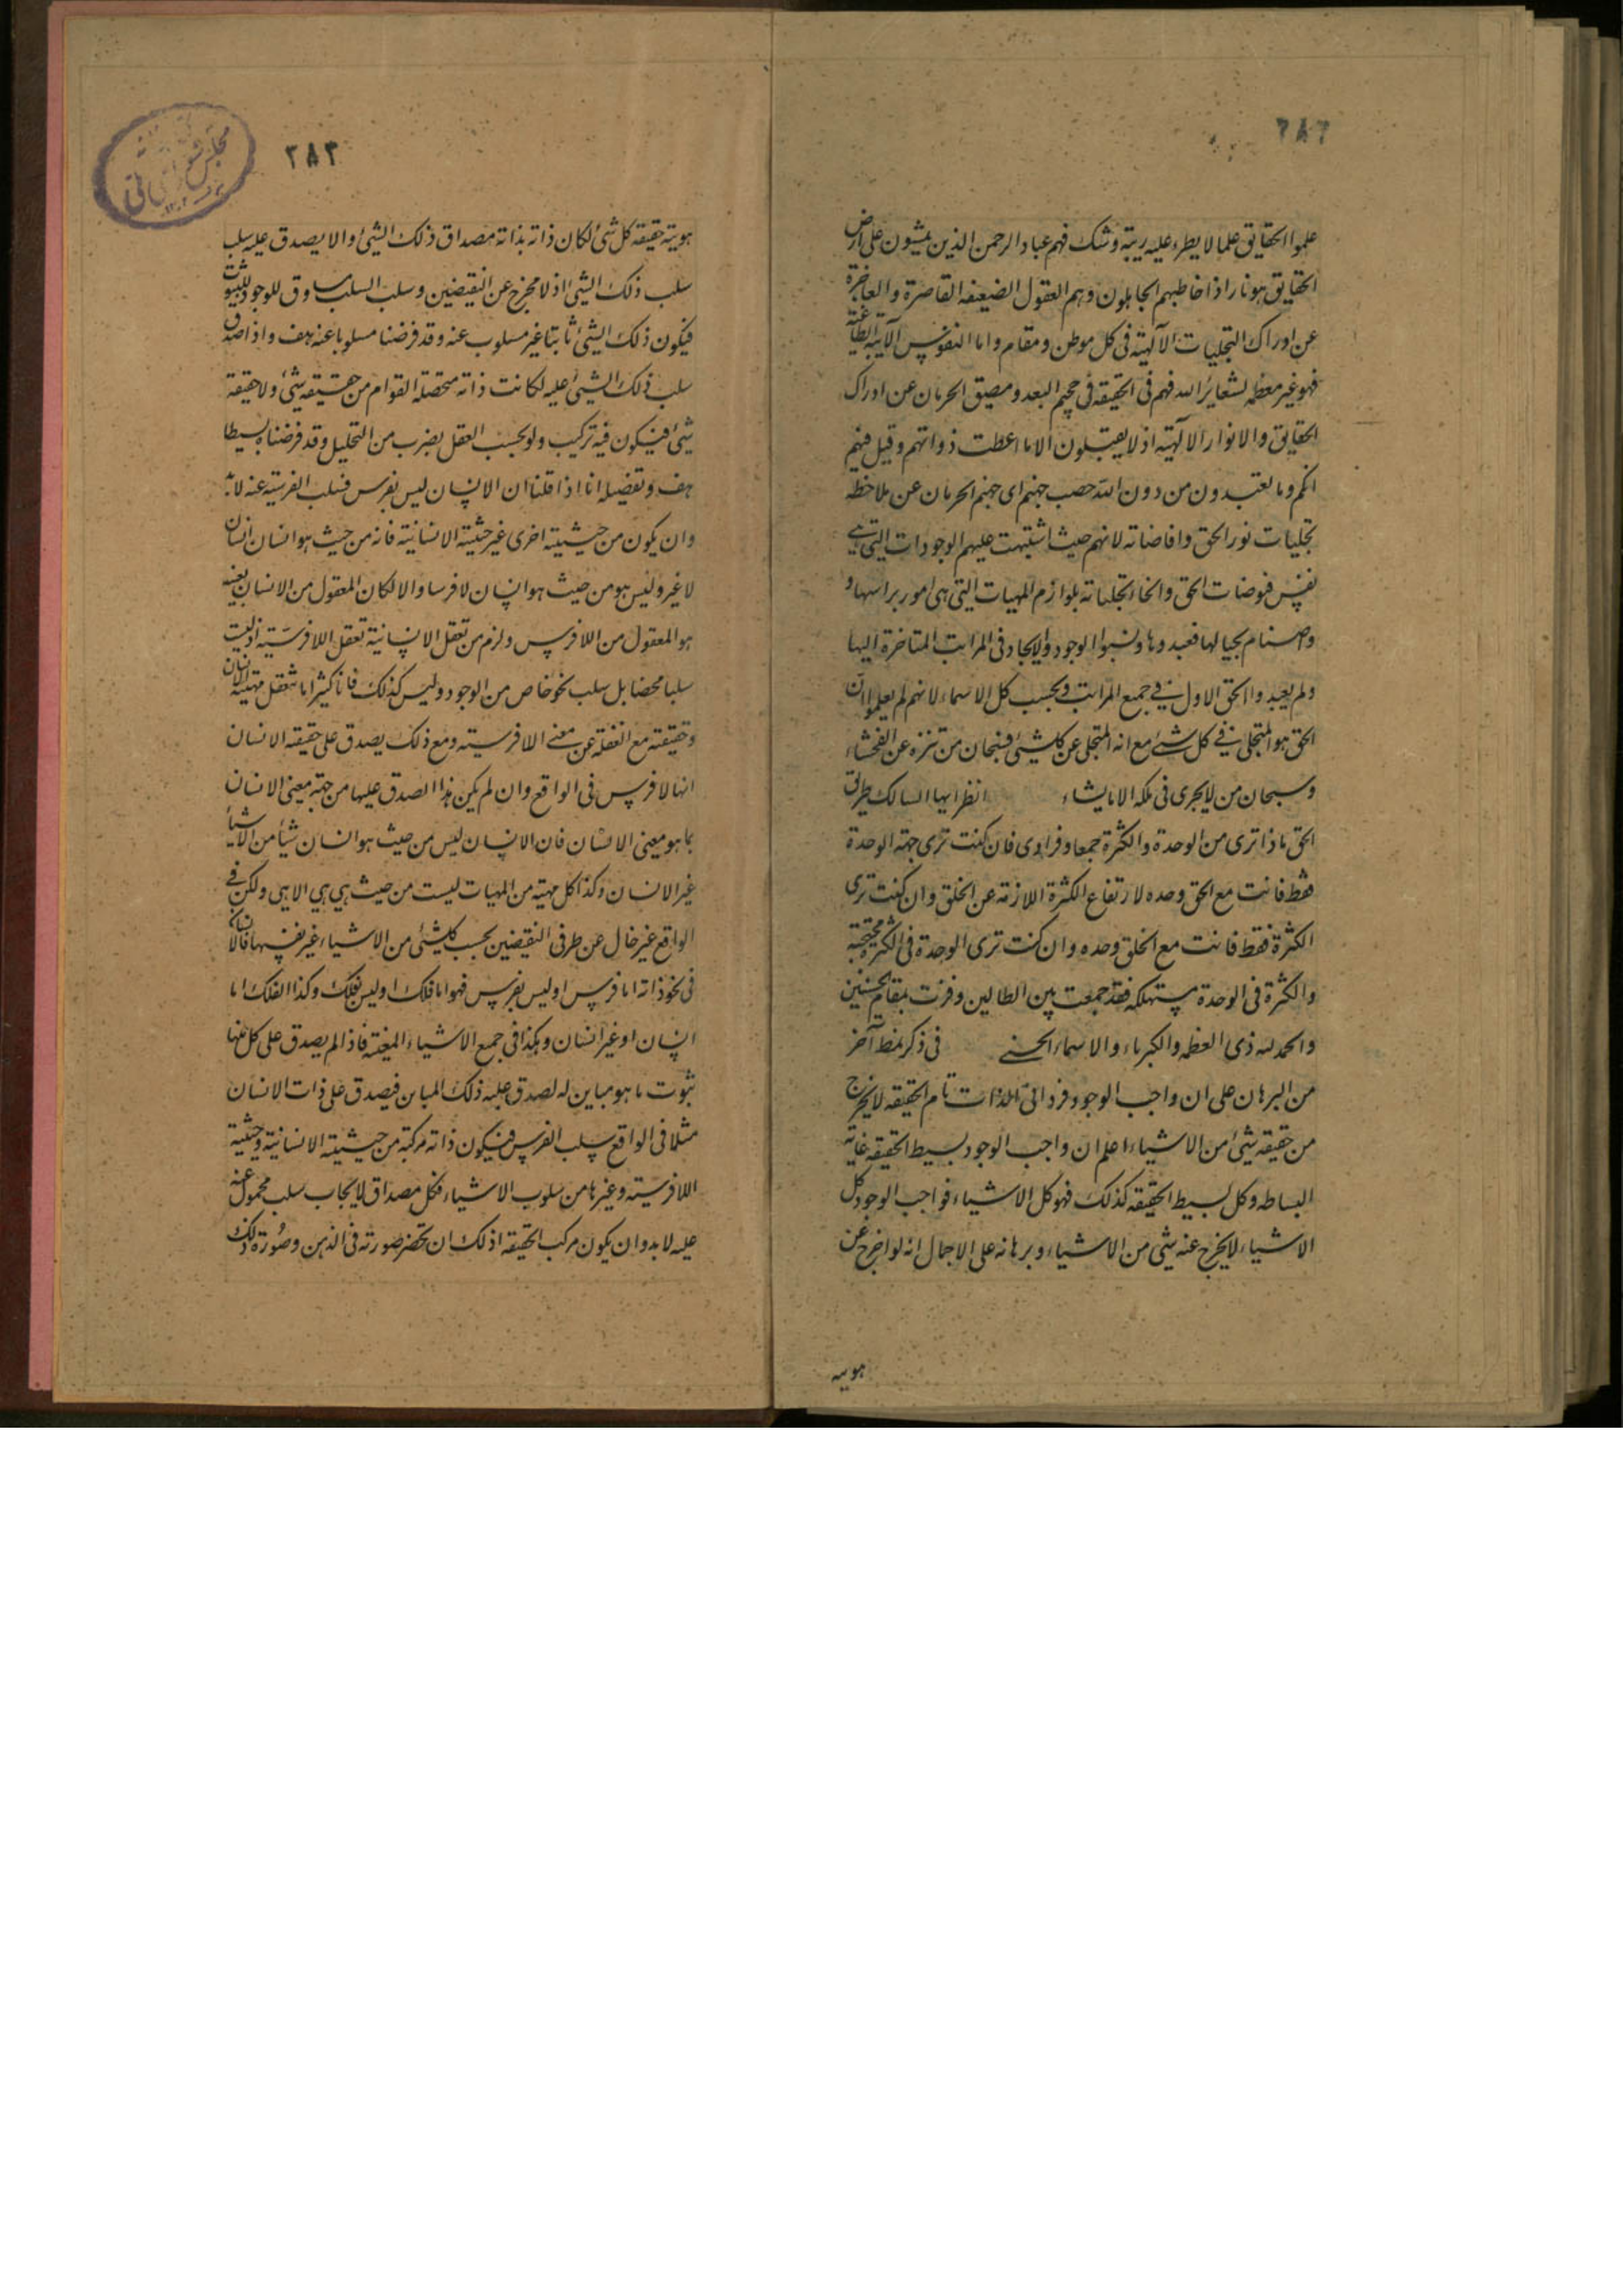 ٢٨٢
علموا الحقايق علما لا يطرء عليه ريبة و شك فهم عباد الرحمن الذين يمشون على ارض
الحقايق هونا و اذا خاطبهم الجاهلون و هم العقول الضعيفه القاصرة و العاجزة
عن ادراك التجليات الآلهية فى كل موطن و مقام و اما النفوس الآبية الطاغية
فهو غير معظمه لشعاير الله فهم فى الحقيقة فى جحيم البعد و مضيق الحرمان عن ادراك
الحقايق و الانوار الالهية اذ لا يقبلون الا ما اعطت ذواتهم و قيل فيهم
انكم و ما تعبدون من دون الله حصب جهنم اى جهنم الحرمان عن ملاحظه
تجليات نور الحق و افاضاته لانهم حيث اشتبهت عليهم الوجودات التى هى
نفس فيوضات الحق و انحاء تجلياته بلوازم المهيات التى هى امور براسها و
و اصنام بحيالها فعبدوها و نسبوا الوجود و الايجاد فى المراتب المتاخرة اليها
و لم يعبدوا الحق الاول فى جميع المراتب و بحسب كل الاسماء لانهم لم يعلموا ان
الحق هو المتجلى فى كل شئ مع انه المتخلى عن كل شئ فسبحان من تنزه عن الفحشاء
و سبحان من لا يجرى فى ملكه الا ما يشاء انظر ايها السالك طريق
الحق ماذا ترى من الوحدة و الكثرة جمعا و فرادى فان كنت ترى جهة الوحدة
فقط فانت مع الحق وحده لارتفاع الكثرة اللازمة عن الخلق و ان كنت ترى
الكثرة فقط فانت مع الخلق وحده و ان كنت ترى الوحدة فى الكثرة محتجبة
و الكثرة فى الوحدة مستهلكه فقد جمعت بين الكمالين و فزت بمقام الحسنيين
و الحمد لله ذى العظمه و الكبرياء و الاسماء الحسنى فى ذكر نمط آخر
من البرهان على ان واجب الوجود فردانى الذات تام الحقيقه لا يخرج
من حقيقه شئ من الاشياء اعلم ان واجب الوجود بسيط الحقيقه غاية
البساطه و كل بسيط الحقيقه كذلك فهو كل الاشياء فواجب الوجود كل
الاشياء لا يخرج عنه شئ من الاشياء و برهانه على الاجمال انه لو اخرج عن
هويه
٢٨٣
هوية حقيقه كل شئ لكان ذاته بذاته مصداق ذلك الشئ و الا يصدق عليه سلب
سلب ذلك الشئ اذ لا مخرج عن النقيضين و سلب السلب مساوق للوجود للثبوت
فيكون ذلك الشئ ثابتا غير مسلوب عنه و قد فرضنا مسلوبا عنه هف و اذا صدق
سلب ذلك الشئ عليه لكانت ذاته متحصلة القوام من حقيقه شئ و لا حقيقة
شئ فيكون فيه تركيب و لو بحسب العقل بضرب من التحليل و قد فرضناه بسيطا
هف و تفصيله انا اذا قلنا ان الانسان ليس بفرس فسلب الفرسية عنه لابد
و ان يكون من حيثية اخرى غير حيثية الانسانية فانه من حيث هو انسان انسان
لا غير و ليس هو من حيث هو انسان لا فرسا و الا لكان المعقول من الانسان بعينه
هو المعقول من اللافرس و لزم من تعقل الانسانية تعقل اللافرسية اذ ليست
سلبا محضا بل سلب نحو خاص من الوجود و ليس كذلك فانا كثيرا ما نتعقل مهية الانسان
و حقيقته مع الغفلة عن معنى اللافرسية و مع ذلك يصدق على حقيقه الانسان
انها لا فرس فى الواقع و ان لم يكن هذا الصدق عليها من جهة معنى الانسان
بما هو معنى الانسان فان الانسان ليس من حيث هو انسان شيئا من الاشيا
غير الانسان و كذا كل مهية من المهيات ليست من حيث هى هى الا هى و لكن فى
الواقع غير خال عن طرفى النقيضين بحسب كل شئ من الاشياء غير نفسها فالانسان
فى نحو ذاته اما فرس او ليس بفرس فهو اما فلك او ليس بفلك و كذا الفلك اما
انسان او غير انسان و هكذا فى جميع الاشياء المعينة فاذا لم يصدق على كل منها
ثبوت ما هو مباين له لصدق عليه ذلك المباين فيصدق على ذات الانسان
مثلا فى الواقع سلب الفرس فيكون ذاته مركبة من حيثية الانسانية و حيثية
اللافرسية و غيرها من سلوب الاشياء فكل مصداق لايجاب سلب محمول عنه
عليه لابد و ان يكون مركب الحقيقه اذ لك ان تحضر صورته فى الذهن و صورة ذلك